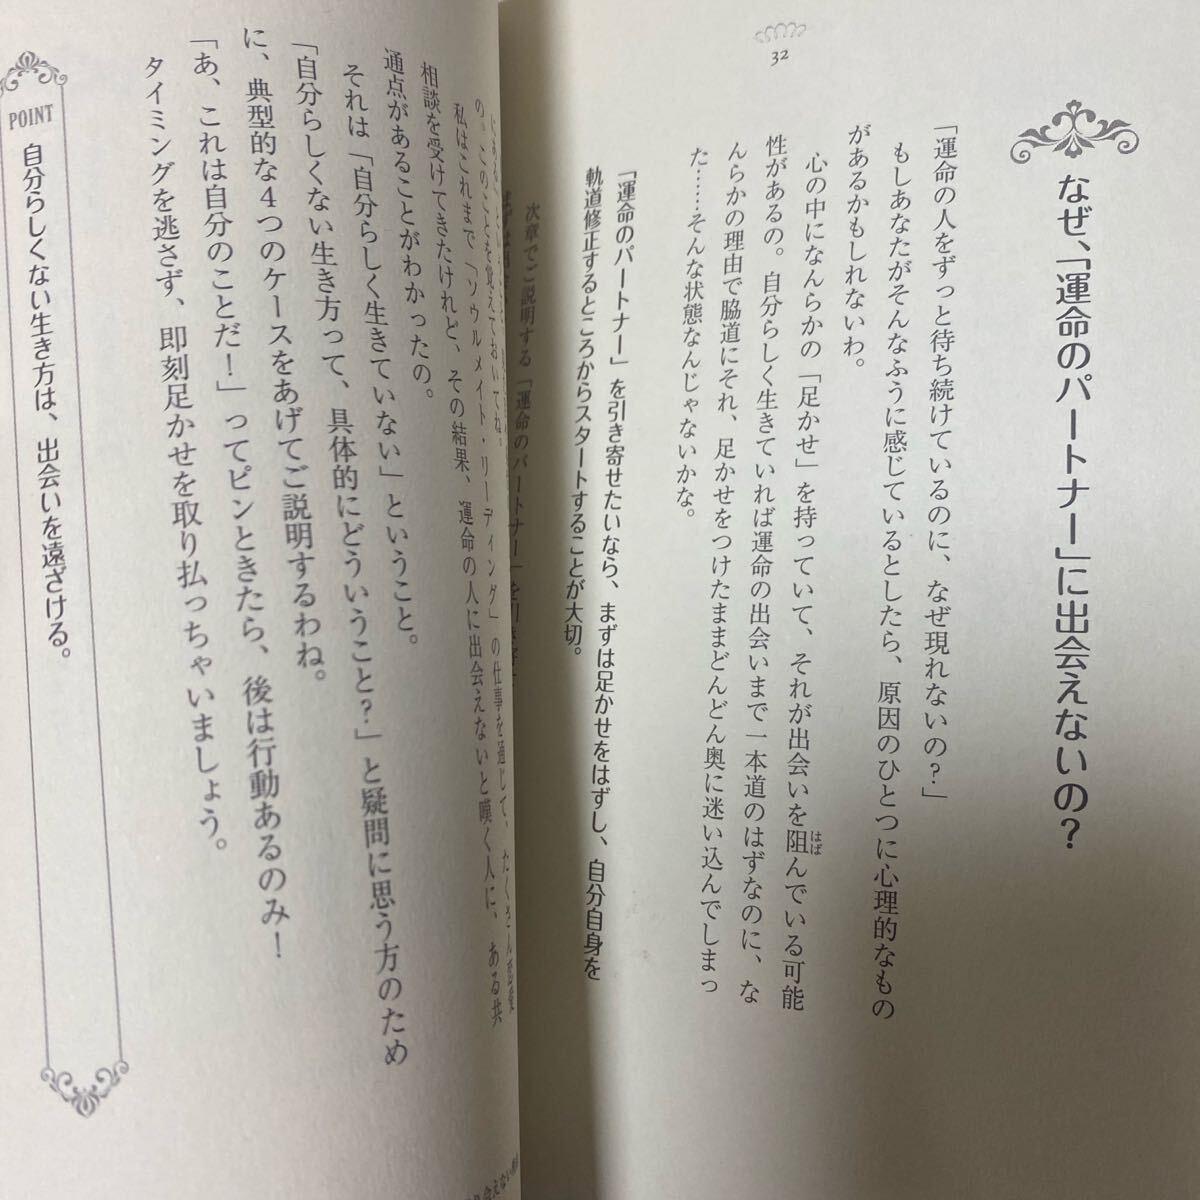 32
なぜ、「運命のパートナー」に出会えないの？
「運命の人をずっと待ち続けているのに、なぜ現れないの？」
もしあなたがそんなふうに感じているとしたら、原因のひとつに心理的なもの
があるかもしれないわ。
心の中になんらかの「足かせ」を持っていて、それが出会いを阻んでいる可能
はば
性があるの。自分らしく生きていれば運命の出会いまで一本道のはずなのに、な
んらかの理由で脇道にそれ、足かせをつけたままどんどん奥に迷い込んでしまっ
た……そんな状態なんじゃないかな。
「運命のパートナー」を引き寄せたいなら、まずは足かせをはずし、自分自身を
軌道修正するところからスタートすることが大切。
次章でご説明する「運命のパートナー」を引き寄
の。このことを覚えておいてね。
私はこれまで「ソウルメイト・リーディング」の仕事を通じて、たくさん恋愛
相談を受けてきたけれど、その結果、運命の人に出会えないと嘆く人に、ある共
通点があることがわかったの。
それは「自分らしく生きていない」ということ。
「自分らしくない生き方って、具体的にどういうこと？」と疑問に思う方のため
に、典型的な４つのケースをあげてご説明するわね。
「あ、これは自分のことだ！」ってピンときたら、後は行動あるのみ！
タイミングを逃さず、即刻足かせを取り払っちゃいましょう。
POINT
自分らしくない生き方は、出会いを遠ざける。